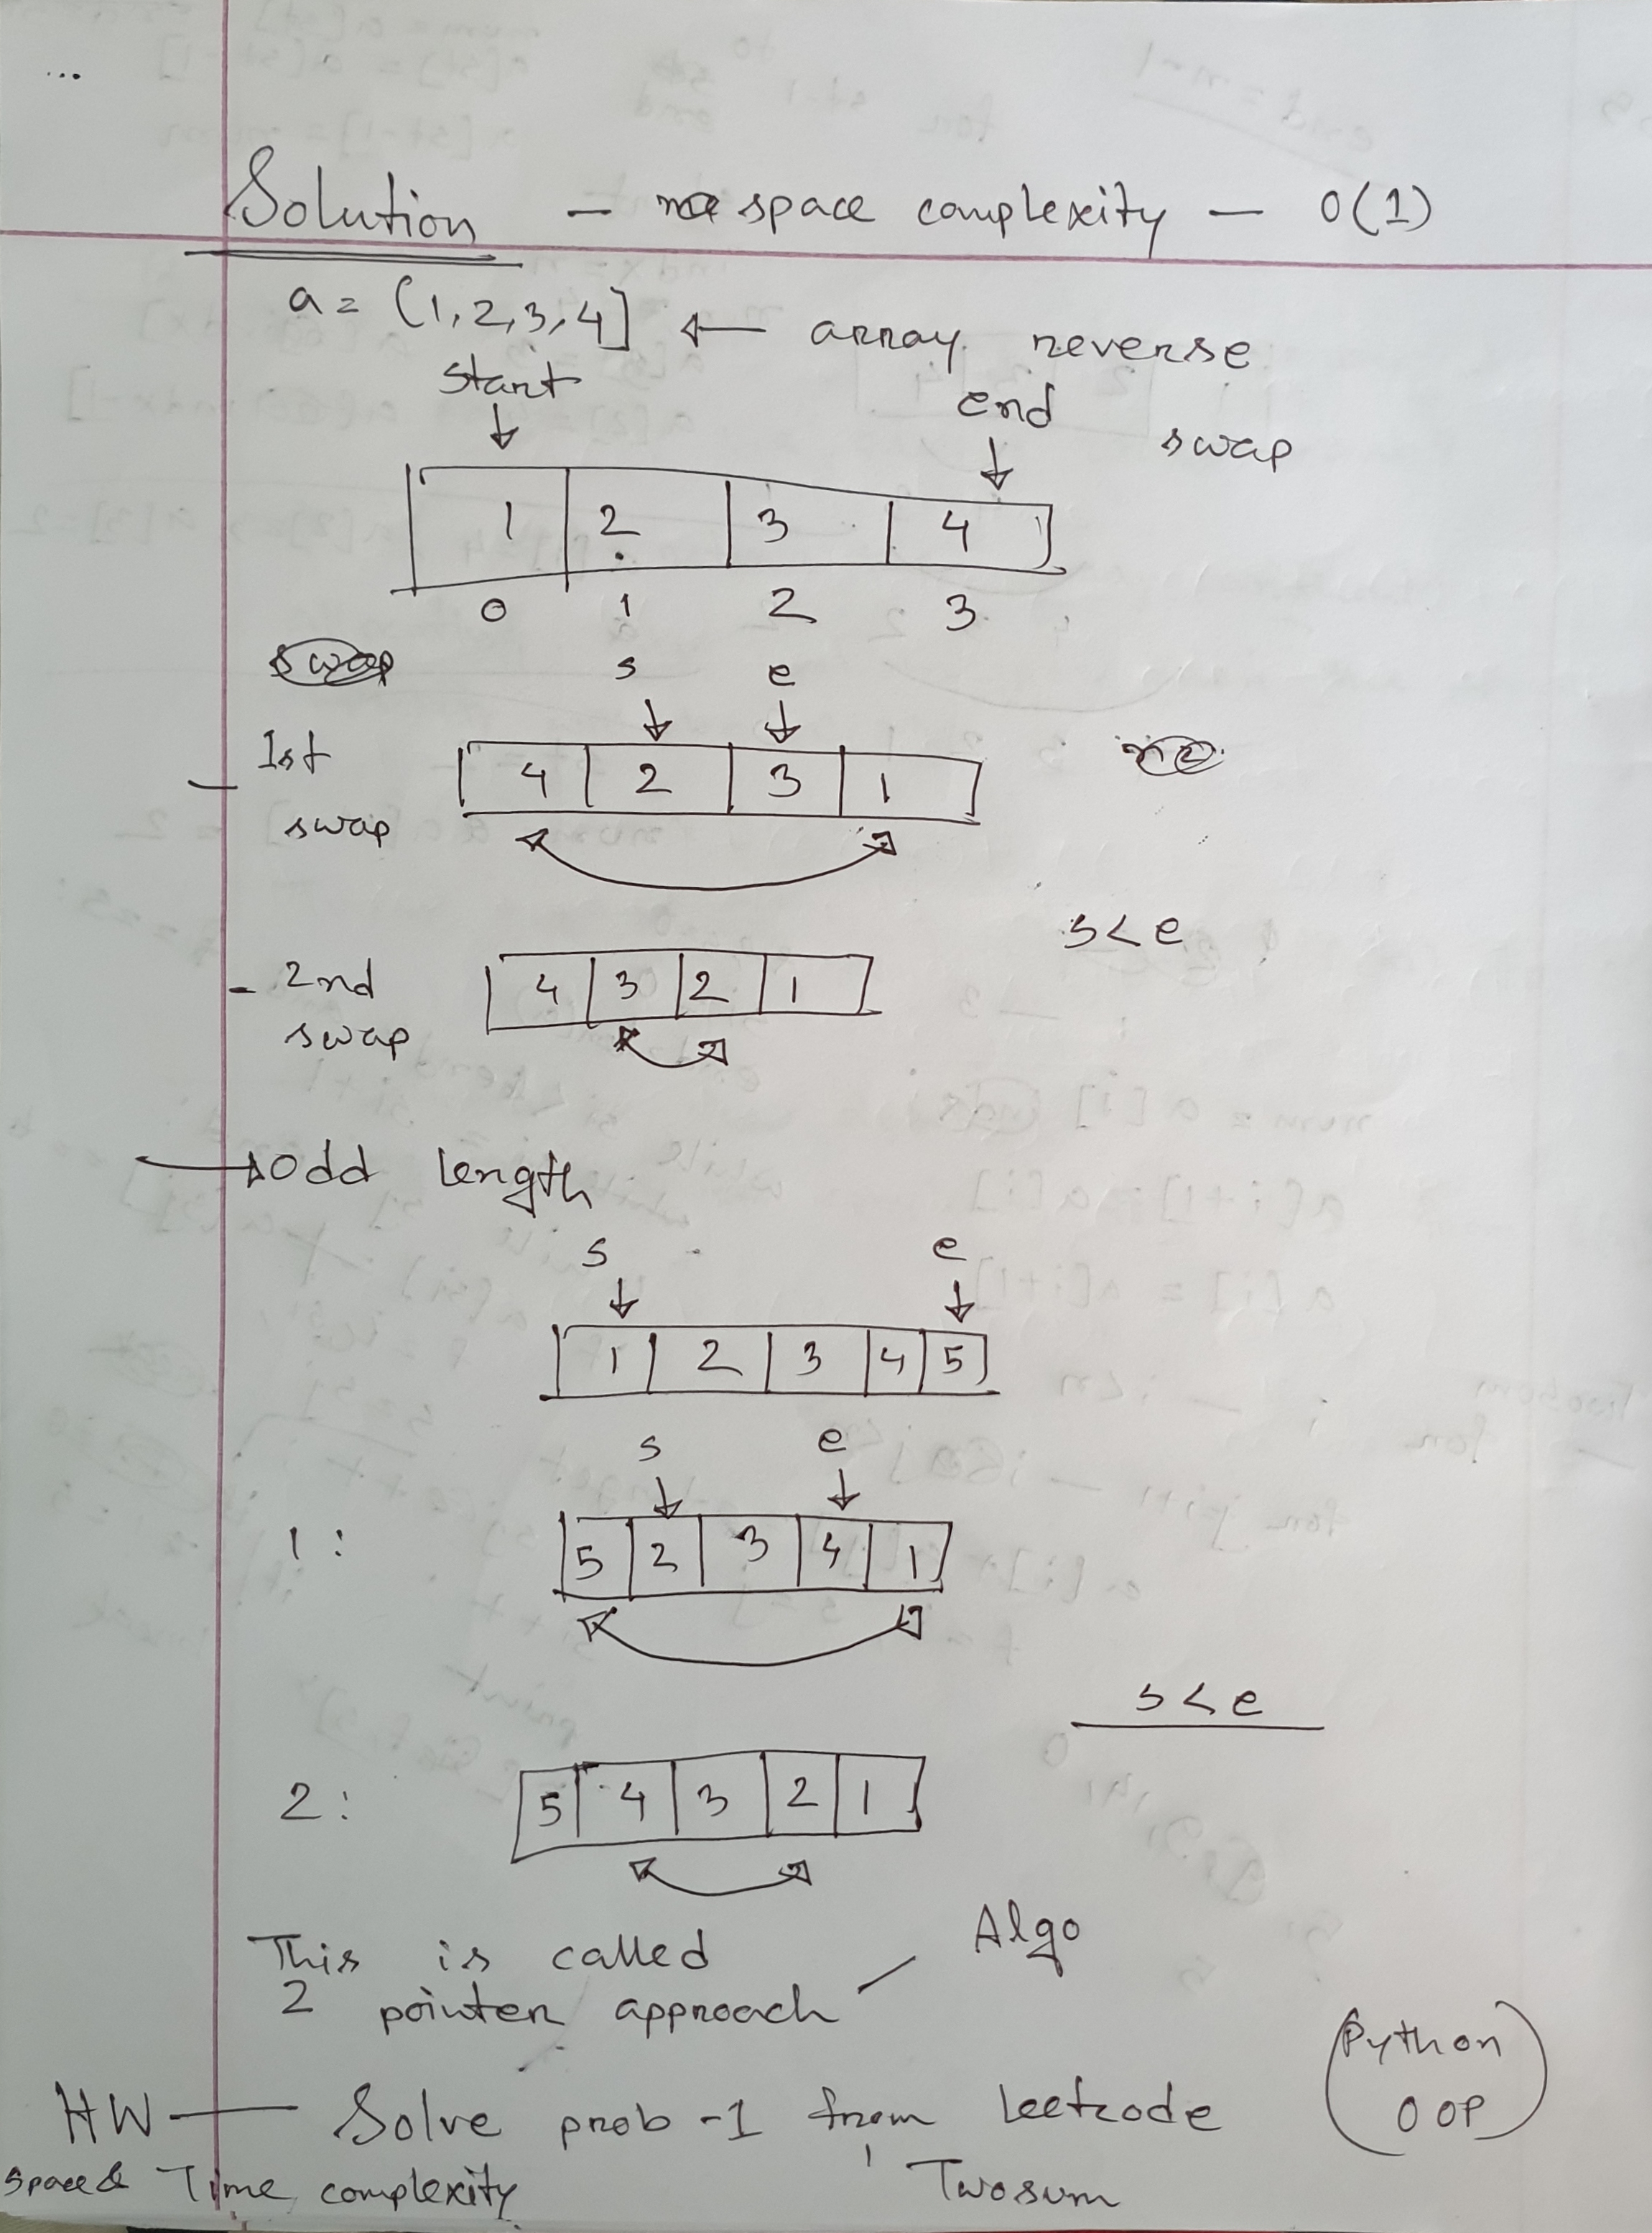 Solution — space complexity — O(1)
a = [1,2,3,4] ← array reverse
start
end
swap
1 2 3 4
0 1 2 3
swap
s e
1st swap
4 2 3 1
s<e
2nd swap
4 3 2 1
→ Odd length
s e
1 2 3 4 5
s e
1: 5 2 3 4 1
s<e
2: 5 4 3 2 1
Algo
This is called
2 pointer approach
(Python OOP)
HW — Solve prob-1 from leetcode
Space & Time complexity
Twosum